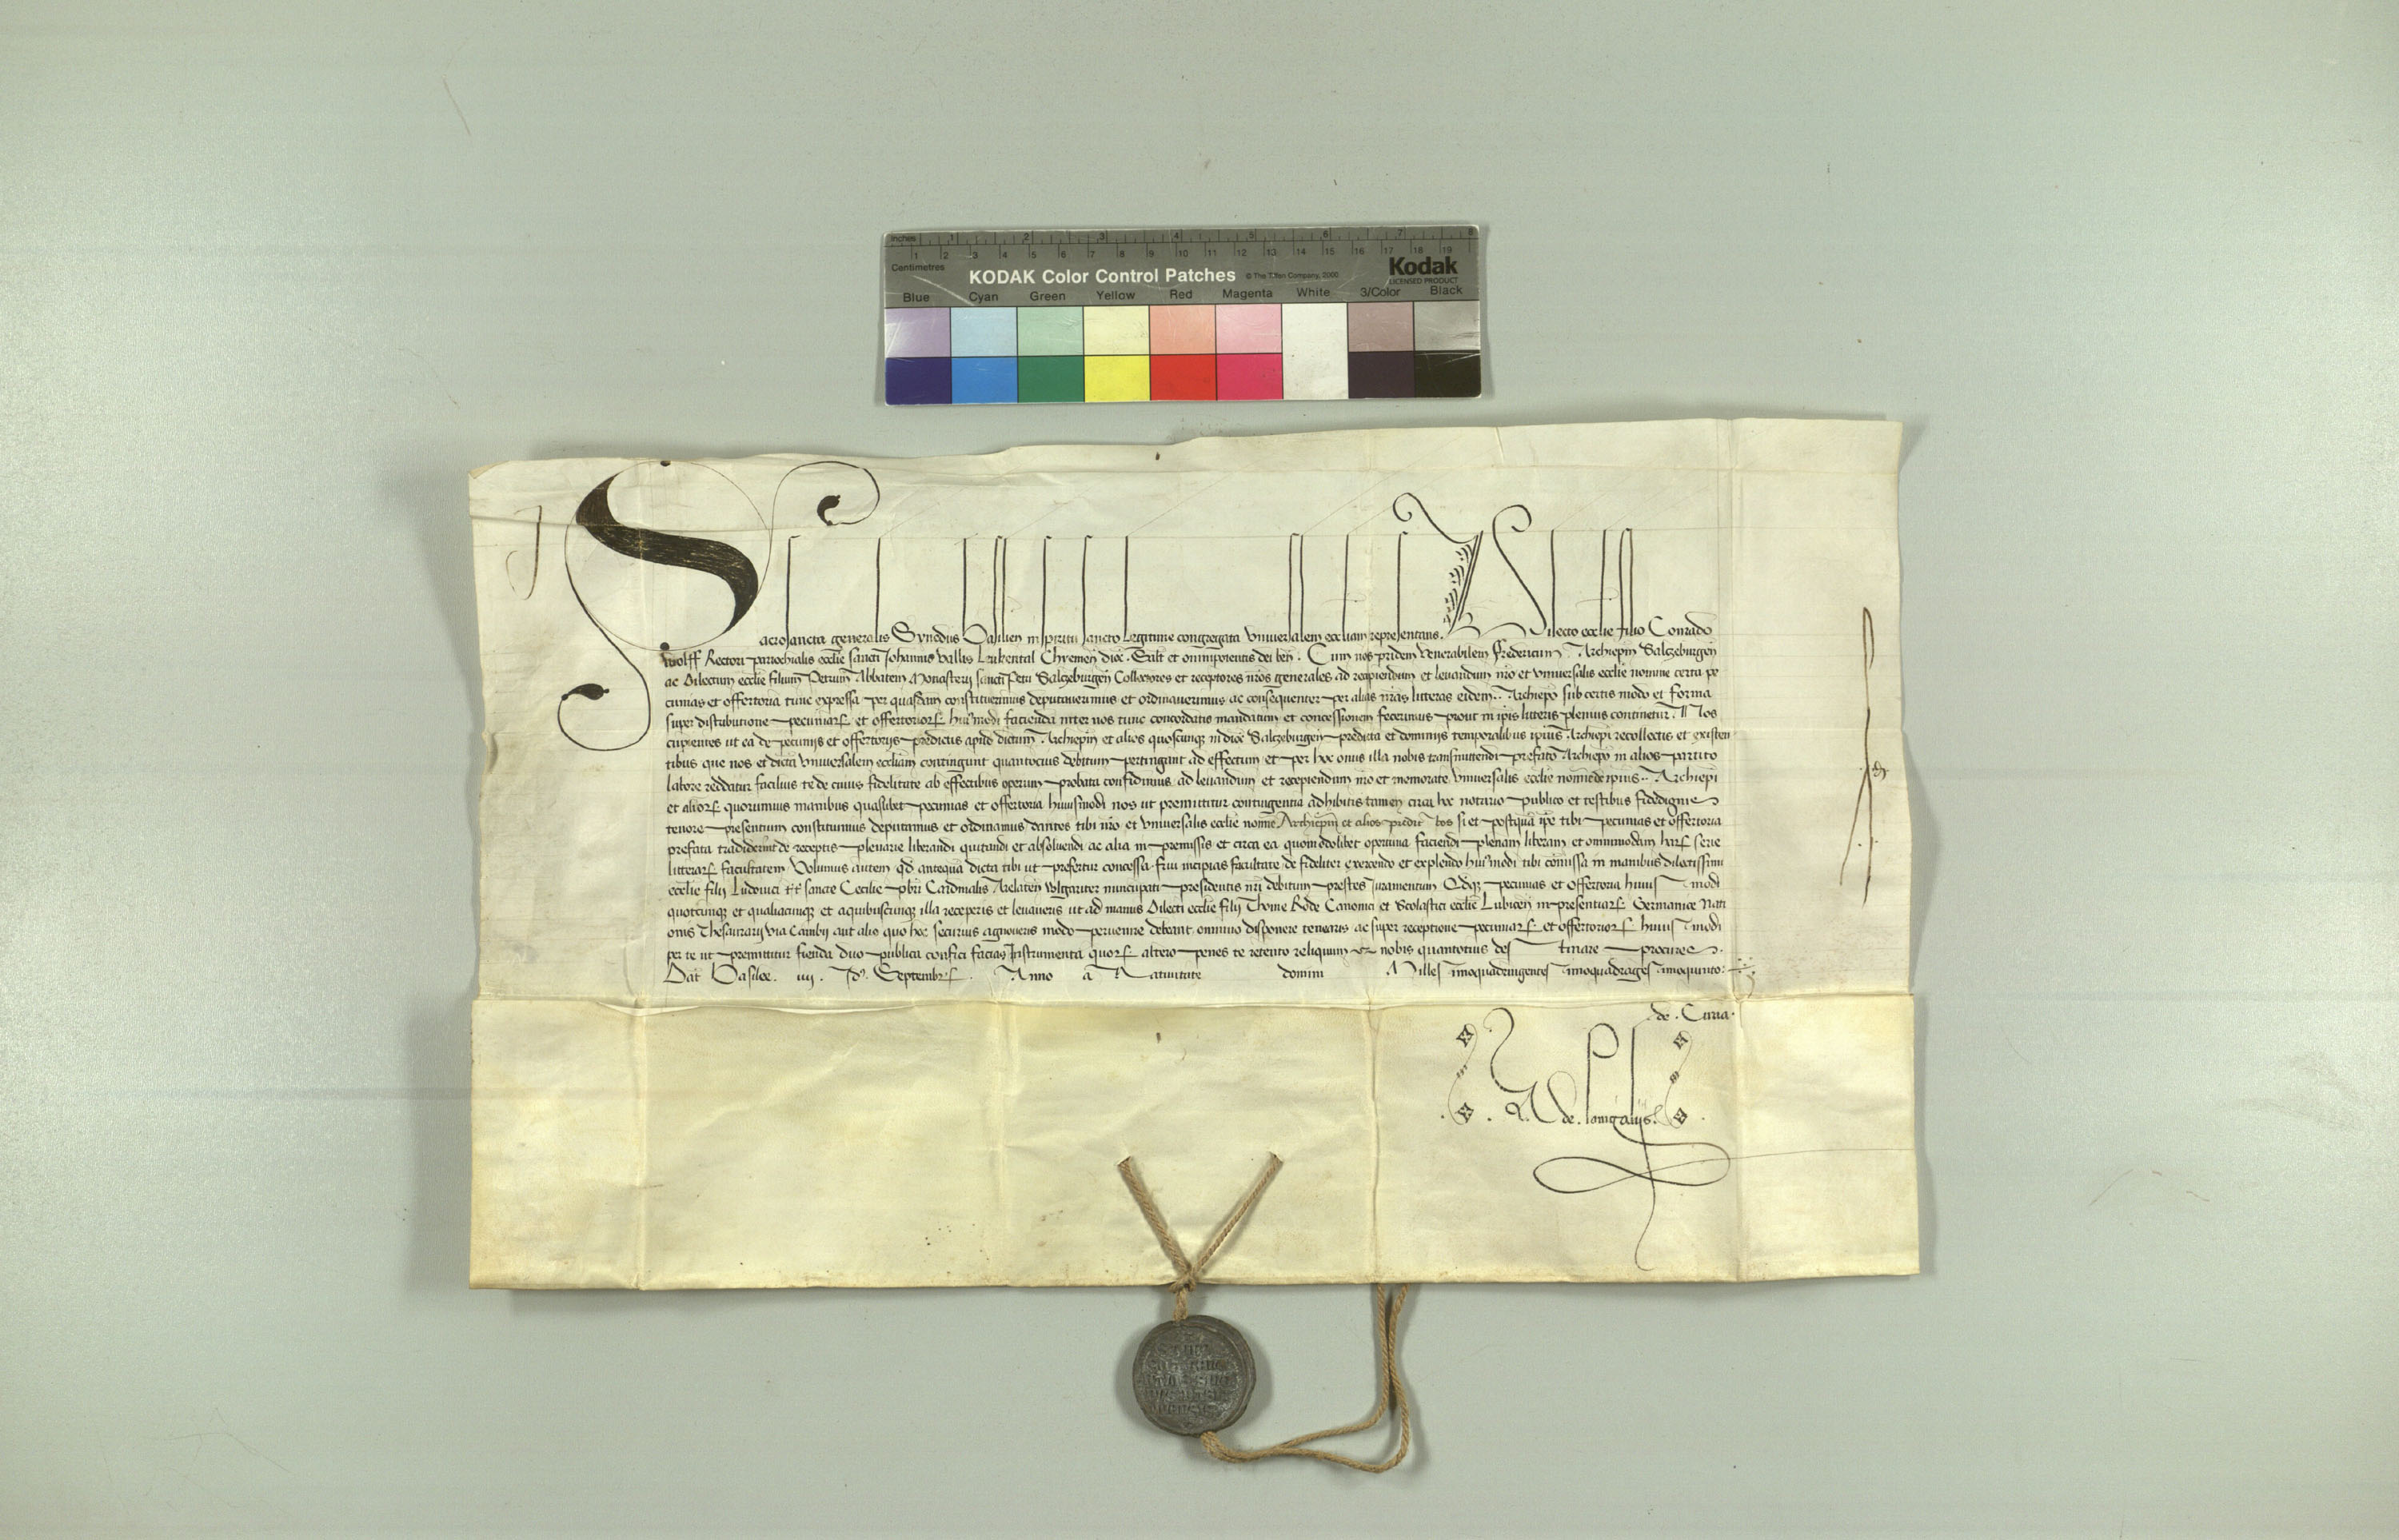 Inches 1 2 3 4 5 6 7 8
1 2 3 4 5 6 7 8 9 10 11 12 13 14 15 16 17 18 19
Centimetres
KODAK Color Control Patches © The Tiffen Company, 2000 Kodak
LICENSED PRODUCT
Blue Cyan Green Yellow Red Magenta White 3/Color Black
Sacrosancta generalis Synodus Basilien in spiritu sancto legitime congregata universalem eccliam representans. Dilecto ecclie filio Conrado
Wolff Rectori parrochialis ecclie sancti Johannis vallis Leukental Chyemen dioc. Salt et omnipotentis dei ben. Cum nos pridem Venerabilem Fredericum Archiepm Salczeburgen
ac Dilectum ecclie filium Petrum Abbatem Monasterij sancti Petri Salczeburgen Collectores et receptores nros generales ad recipiendum et levandum nro et vniversalis ecclie nomine certa pe
cunias et offertoria tunc expressa per quasdam constituerimus deputaverimus et ordinaverimus ac consequenter per alias nras litteras eidem Archiepo sub certis modo et forma
super distributione pecuniar et offertorior huiusmodi facienda inter nos tunc concordatis mandatum et concessionem fecerimus prout in ipis litteris plenius continetur. Nos
cupientes ut ea de pecunijs et offertorijs predictis apud dictum Archiepm et alios quoscunque in dioc Salczeburgen predicta et dominijs temporalibus ipius Archiepi recollectis et existen
tibus que nos et dictam vniversalem eccliam contingunt quantocius debitum pertingant ad effectum et per hoc onus illa nobis transmittendi prefato Archiepo in alios partito
labore reddatur facilius te de cuius fidelitate ab effectibus operum probata confidimus ad levandum et recipiendum nro et memorate vniversalis ecclie nomine de ipius Archiepi
et alior quorumvis manibus quaslibet pecunias et offertoria huiusmodi nos ut premittitur contingentia adhibitis tamen circa hoc notario publico et testibus fidedignis
tenore presentium constituimus deputamus et ordinamus dantes tibi nro et vniversalis ecclie nomine Archiepm et alios predictos si et postqua ipe tibi pecunias et offertoria
prefata tradiderint de receptis plenarie liberandi quitandi et absolvendi ac alia in premissis et circa ea quomodolibet oportuna faciendi plenam liberam et omnimodam har serie
litterar facultatem Volumus autem qd antequa dicta tibi ut prefertur concessa frui incipias facultate de fideliter exercendo et explendo huiusmodi tibi comissa in manibus dilectissimi
ecclie filij Ludovici tt sancte Cecilie pbri Cardinalis Arelaten vulgariter nuncupati presidentis nri debitum prestes Juramentum Qdque pecunias et offertoria huius modi
quotcunque et qualiacunque et a quibuscunque illa receperis et levaveris ut ad manus Dilecti ecclie filij Thome Rode Canonici et Scolastici ecclie Lubicen in presentiar Germanice Nati
onis Thesaurarij via Cambij aut alio quo hoc securius agnoveris modo pervenire debeant omnino disponere tenearis ac super receptione pecuniar et offertorior huius modi
per te ut premittitur fienda duo publica confici facias Instrumenta quor altero penes te retento reliquum nobis quantotius des tinare procures.
Dat Basilee. iiij. Id. Septembr. Anno a Nativitate domini Millesimoquadringentesimoquadragesimoquinto.
de . Curia.
de.